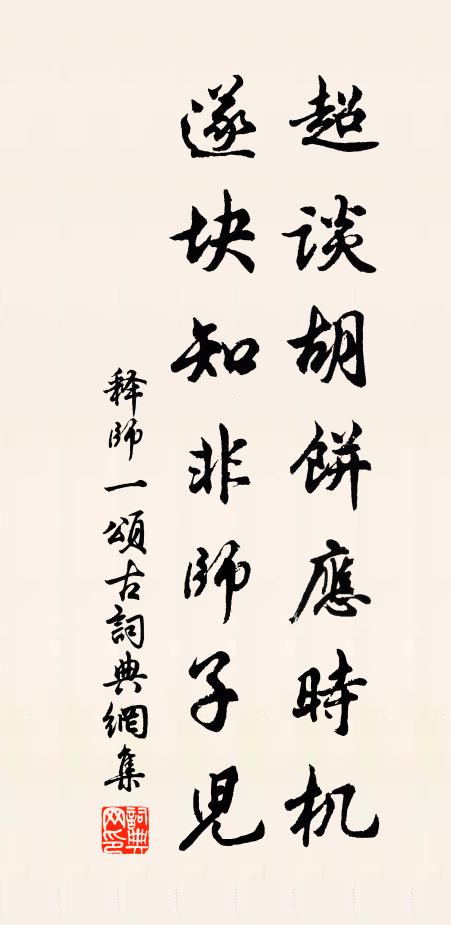 超谈胡餅應時机
逐块知非師子児
释師一頌古詞典網集
詞典網印